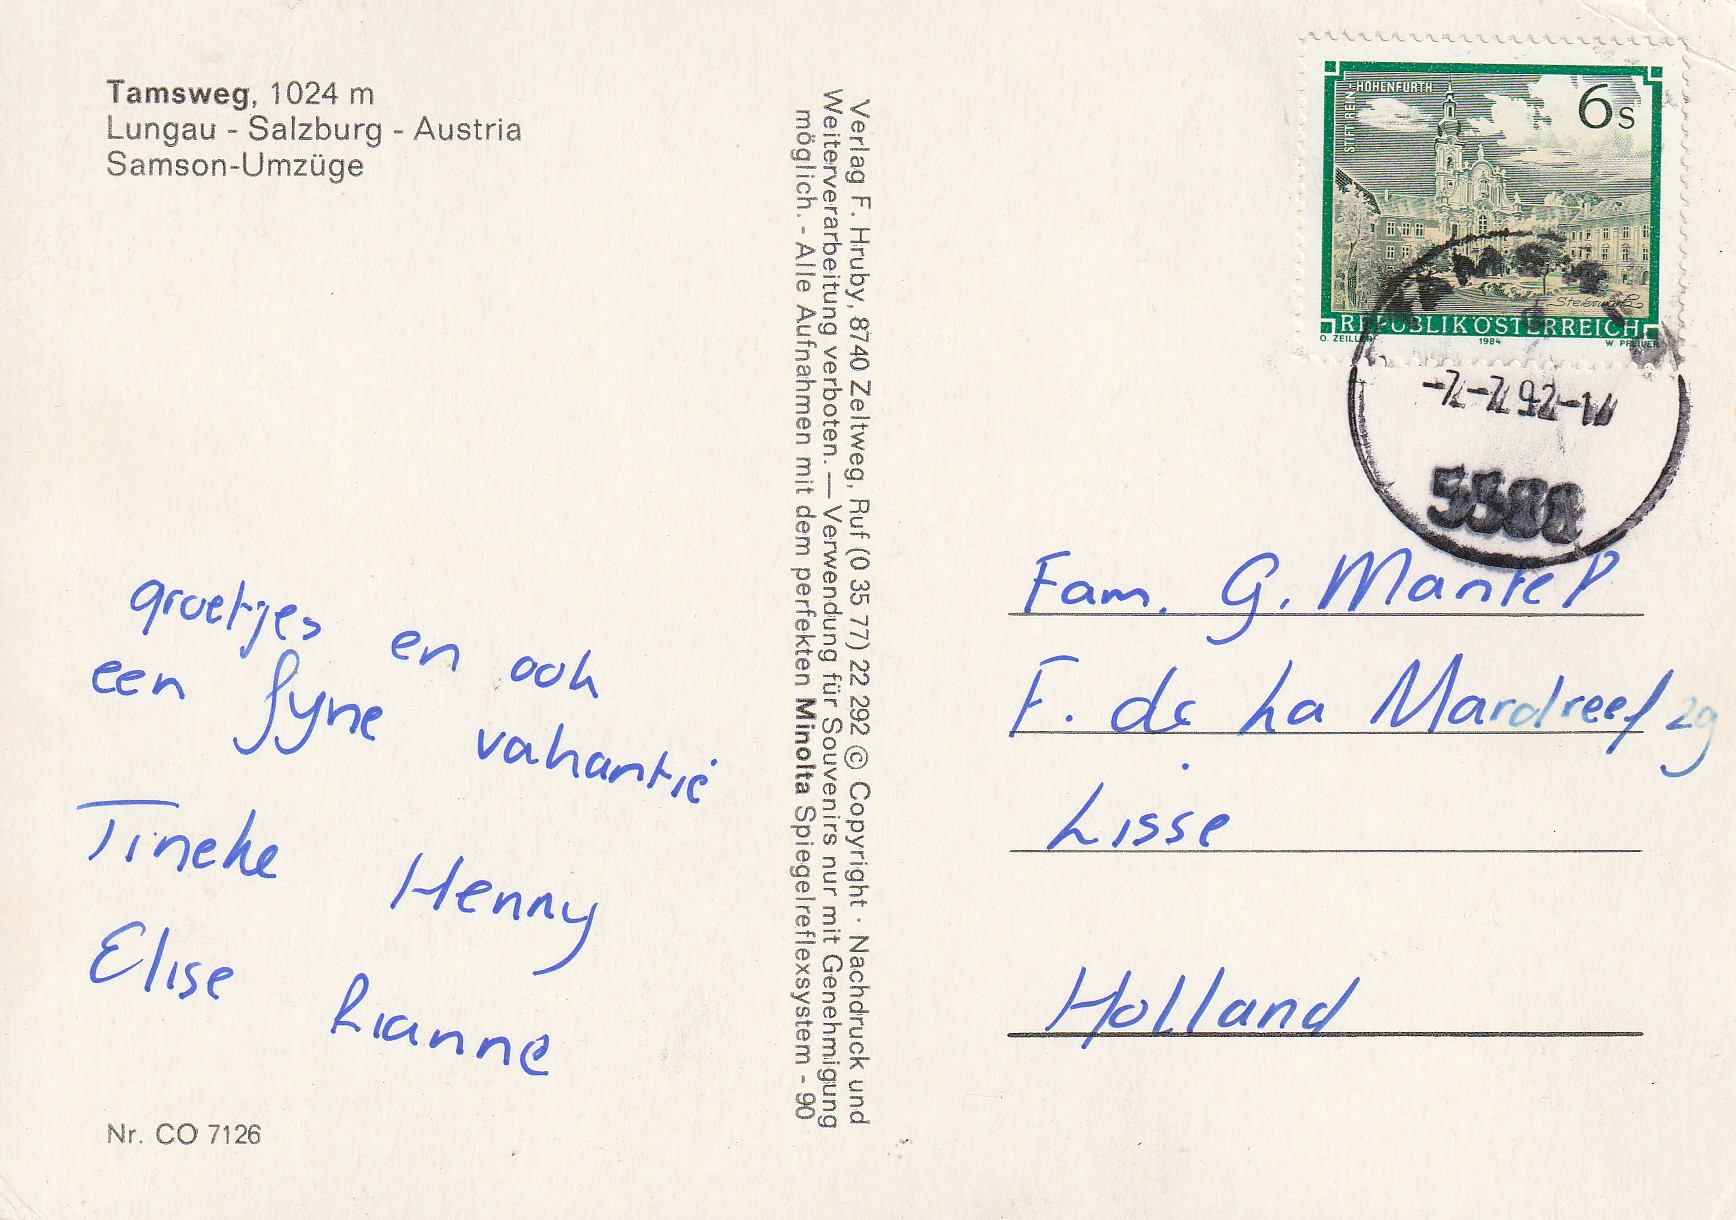 Tamsweg, 1024 m
Lungau - Salzburg - Austria
Samson-Umzüge
groetjes en ook
een fyne vakantie
Tineke Henny
Elise Rianne
Nr. CO 7126
Verlag F. Hruby, 8740 Zeltweg, Ruf (0 35 77) 22 292 © Copyright · Nachdruck und
Weiterverarbeitung verboten. — Verwendung für Souvenirs nur mit Genehmigung
möglich. - Alle Aufnahmen mit dem perfekten Minolta Spiegelreflexsystem - 90
STIFT REIN-HOHENFURTH
6s
Steiermark
REPUBLIK ÖSTERREICH
O. ZEILLER 1984 W. PFEILER
-7.-7.92-17
5580
Fam. G. Mantel
F. de La Mardreef 29
Lisse
Holland